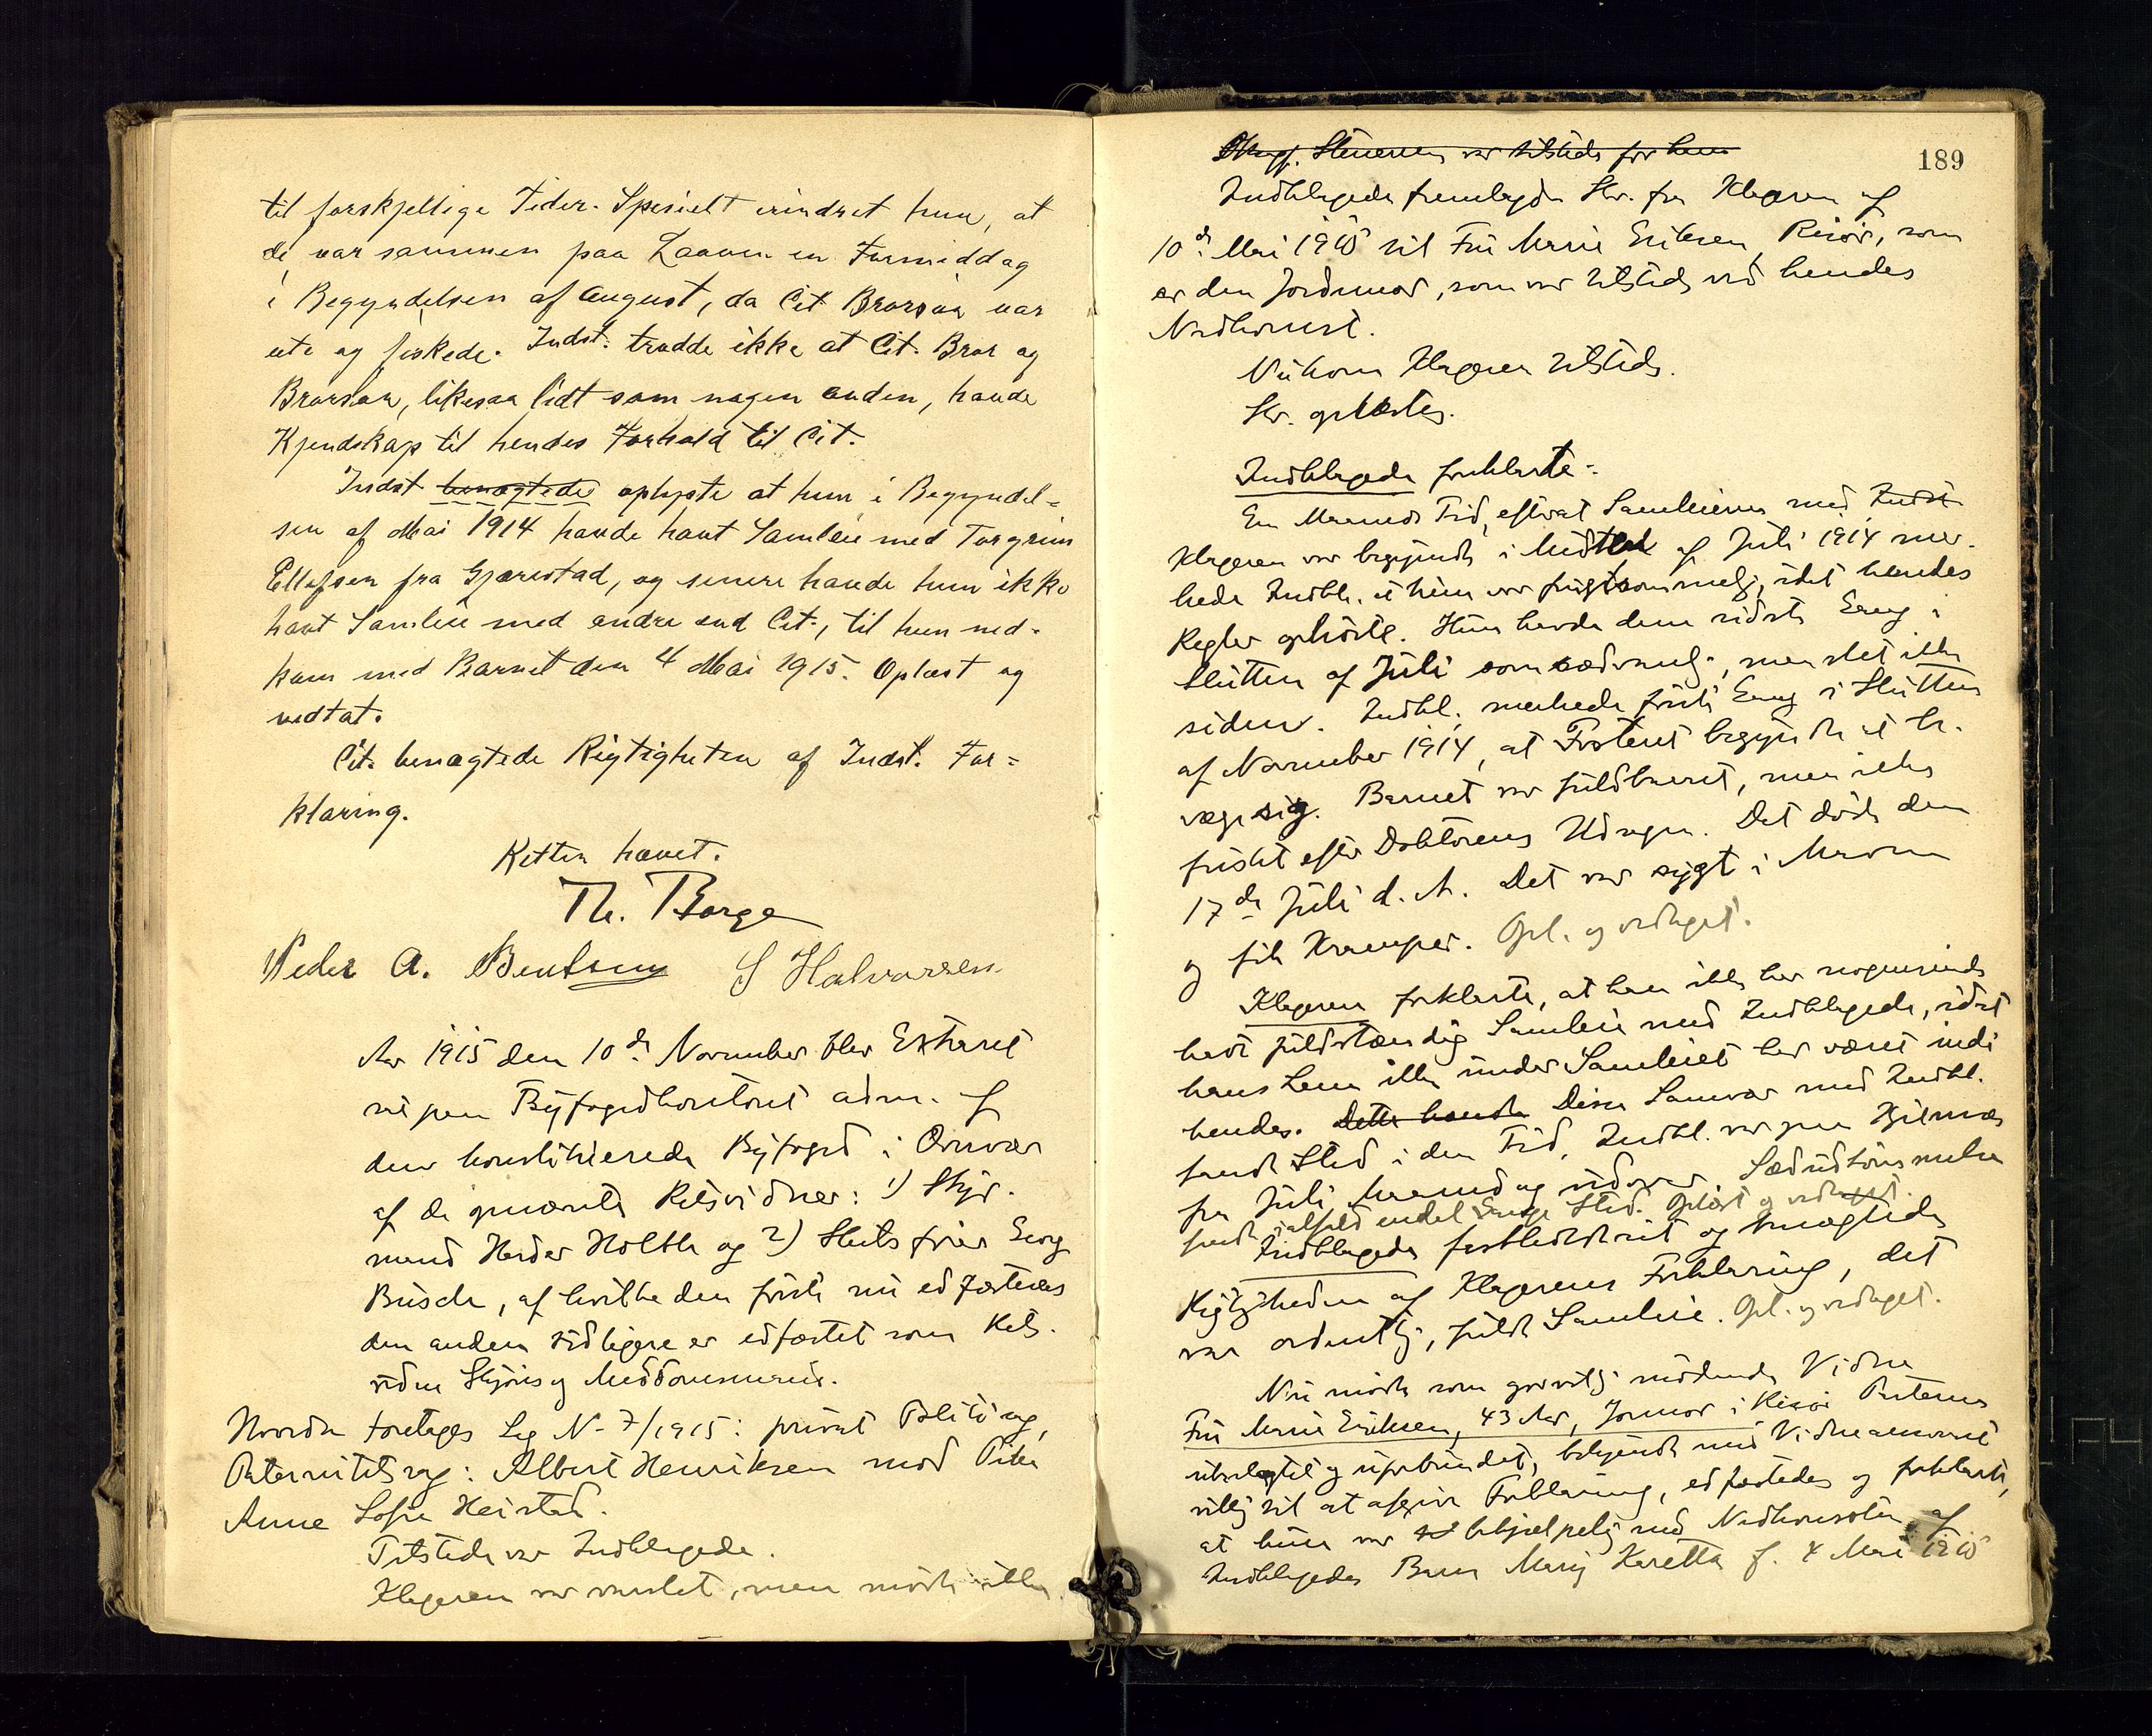 til forskjellige Tider. Specielt erindret hun, at
de var sammen paa Laaven en Formiddag
i Begyndelsen af August, da Cit. Brorsøn var
ute og fiskede. Indst. trodde ikke at Cit. Bror og
Brorsøn, likesaa lidt som nogen anden, havde
Kjendskap til hendes Forhold til Cit.
Indst benægtede oplyste at hun i Begyndel-
sen af Mai 1914 havde havt Samleie med Torgrim
Ellefsen fra Gjerestad, og senere havde hun ikke
havt Samleie med andre end Cit., til hun ned-
kom med Barnet den 4 Mai 1915. Oplæst og
vedtat.
Cit. benægtede Rigtigheten af Indst. For-
klaring.
Retten hævet.
Th. Borge
Peder A. Bentsen S Halvorsen
Aar 1915 den 10de November blev Extraret
sat paa Byfogedkontoret adm. af
den konstituerede Byfoged i
af de opnævnte Retsvidner: 1)
mand Holtte og 2) Georg
Busch, af hvilke den første nu edfæstedes
den anden tidligere er edfæstet som Rets-
vidne Skjöns og Meddomsmand.
Hvorda foretoges Sag N- 7/1915: privat Politisag,
Paternitetssag: Albert Henriksen mod Pike
Anne Sofie Heistad.
Tilstede var Indklagede.
Klageren var varslet, men mödte ikke.
189
var tilstede for ham
Indklagede fremlagde Skr. fra Klageren af
10de Mai 1915 til Fru Marie Eriksen, Risör, som
er den Jordmor, som var tilstede ved hendes
Nedkomst.
Nu kom Klageren tilstede.
Skr. oplæstes.
Indklagede forklarte:
En Maaneds Tid, efterat Samleierne med Indst
Klageren var begyndt i Midten af Juli 1914 mer-
kede Indkl. at hun var frugtsommelig, idet hendes
Regler ophörte. Hun havde dem sidste Gang i
Slutten af Juli som sædvanlig, men slet ikke
siden. Indkl. merkede först Gang i Slutten
af November 1914, at Fosteret begyndte at be-
væge sig. Barnet var fuldbaaret, men ikke
friskt efter Doktorens Udsagn. Det döde den
17de Juli d. A. Det var sygt i Maven
og fik Kramper. Opl. og vedtaget.
Klageren forklarte, at han ikke har nogensinde
havt fuldstændig Samleie med Indklagede, idet
hans Lem ikke under Samleiet har været indi
hendes. Dette hændte Disse Samvær med Indkl.
fandt Sted i den Tid, Indkl. var paa
fra Juli Maaned og utover. Sæduttömmelse
fandt ialfald endel Gange Sted. Oplæst og vedtaget.
Indklagede fastholdt sit og benægtede
Rigtigheden af Klagerens Forklaring, det
var ordentlig, fuldt Samleie. Opl. og vedtaget.
Nu mödte som godvillig mödende Vidne
Fru Marie Eriksen, 43 Aar, Jormor i Risör Parterne
ubeslegtet og uforbundet, bekjendt med Vidneansvaret
villig til at afgive Forklaring, edfæstedes og forklarte,
at hun var behjælpelig ved Nedkomsten af
Indklagedes Barn Mary Karetta f. 4 Mai 1915